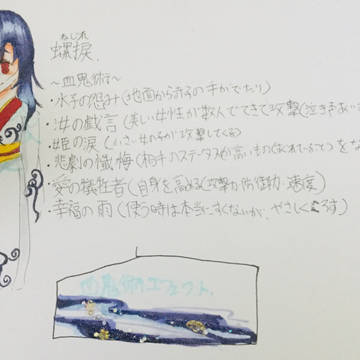 ねじれ
螺捩
～血鬼術～
・水子の怨み(地面から
・女の戯言(美しい女性が数人でてきて攻撃(泣き
・姫の涙(小さい女の子が攻撃してくる)
・悲劇の懺悔(相手のステータスが高いもの
・愛の犠牲者(自身を高める(攻撃力・防御力・速度)
・幸福の雨(使う時は本当に少ないが、やさしく殺す)
血鬼術エフェクト